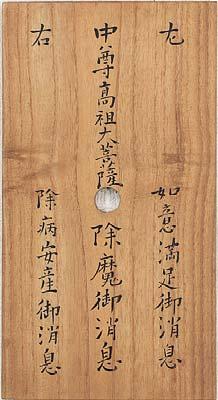 左　如意満足御消息
中尊髙祖大菩薩　除魔御消息
右　除病安産御消息